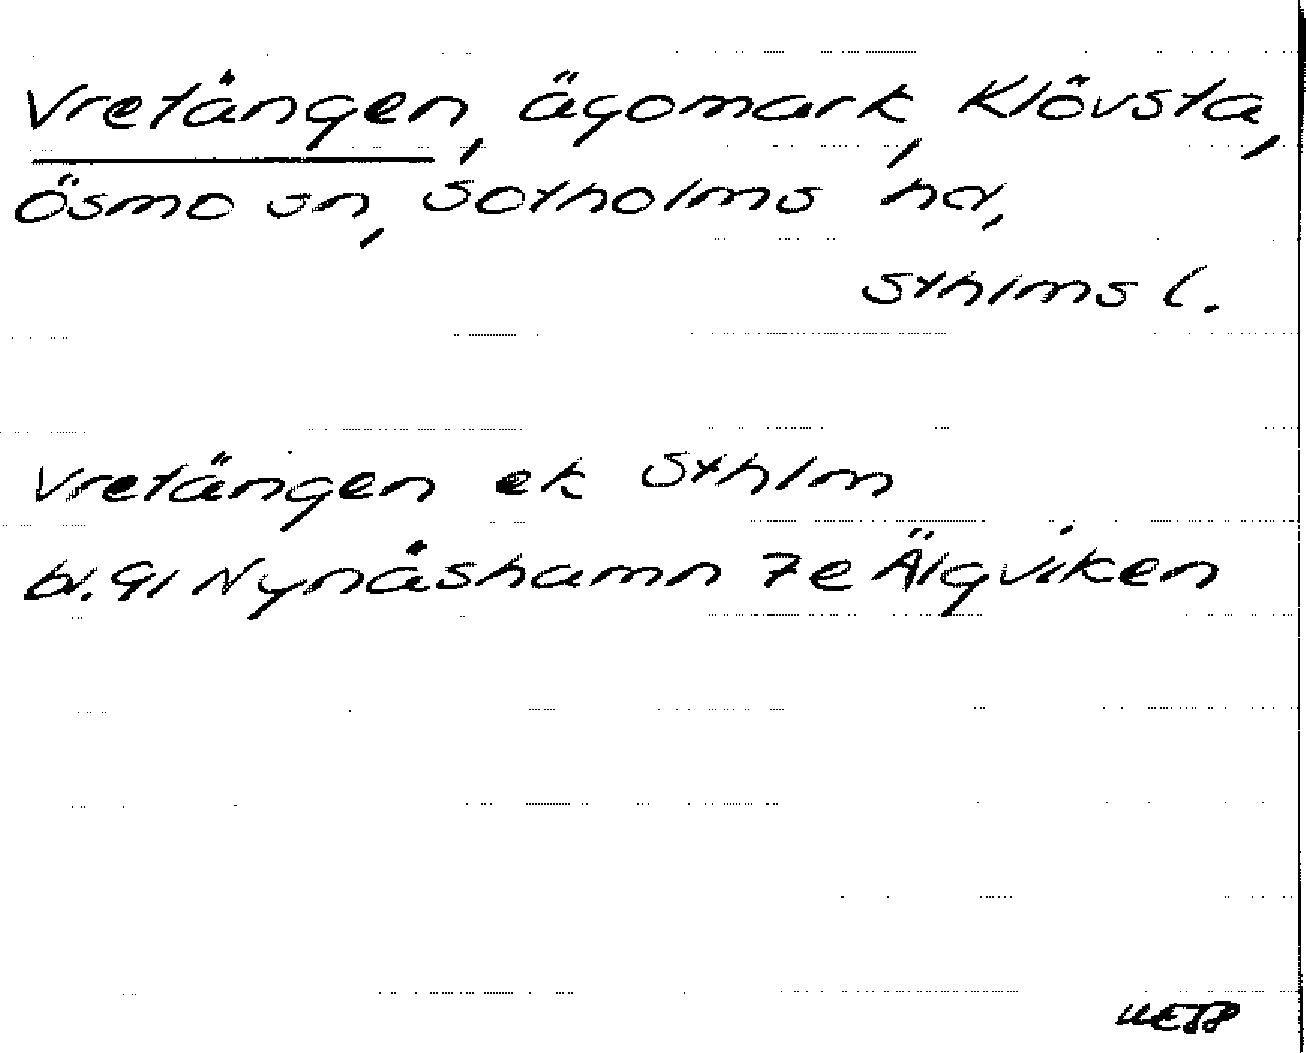 Vretängen, ägomark, Klövsta,
Ösmo sn, Sotholms hd,
Sthlms l.
Vretängen ek Sthlm
bl. 91 Nynäshamn 7e Älgviken